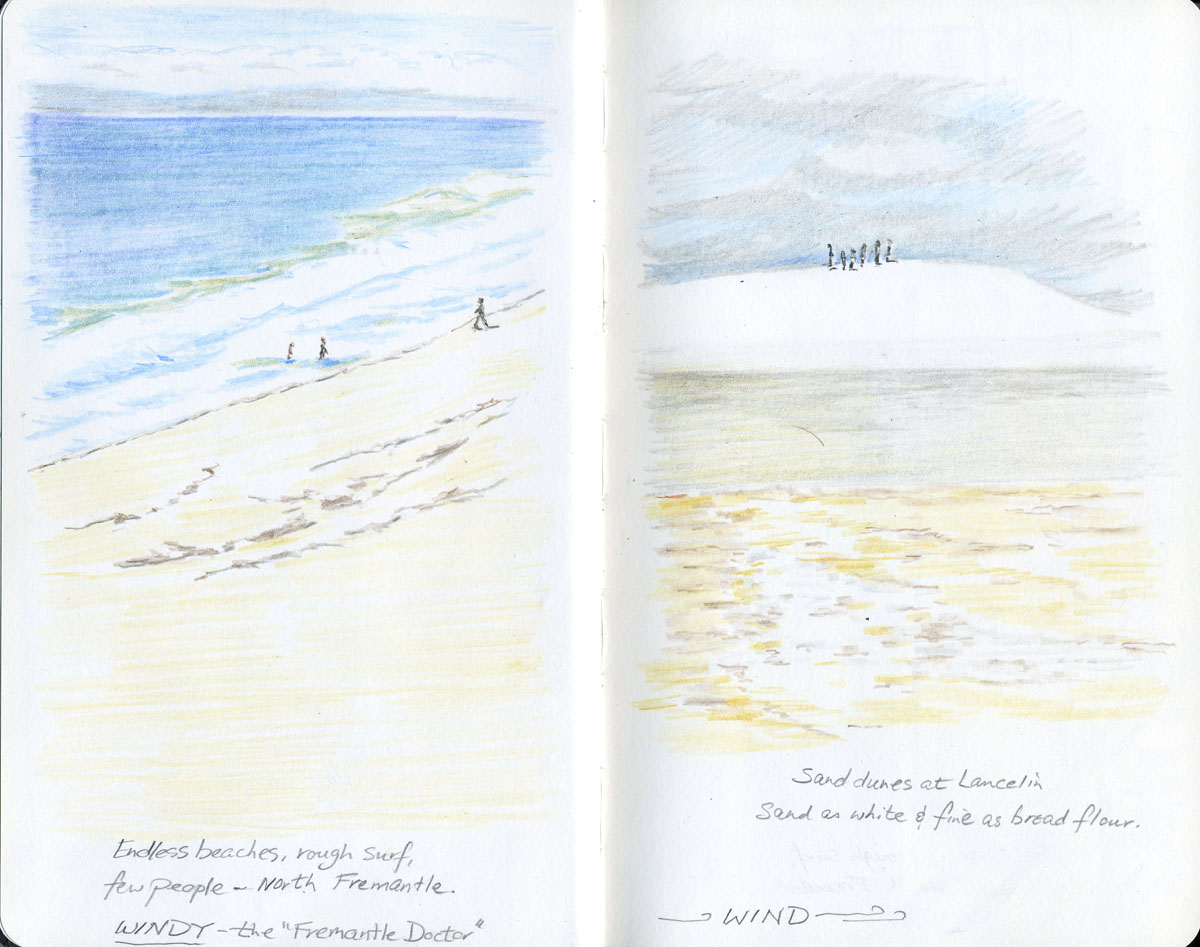 Endless beaches, rough surf,
few people – North Fremantle.
WINDY – the "Fremantle Doctor"
Sand dunes at Lancelin
Sand as white & fine as bread flour.
WIND